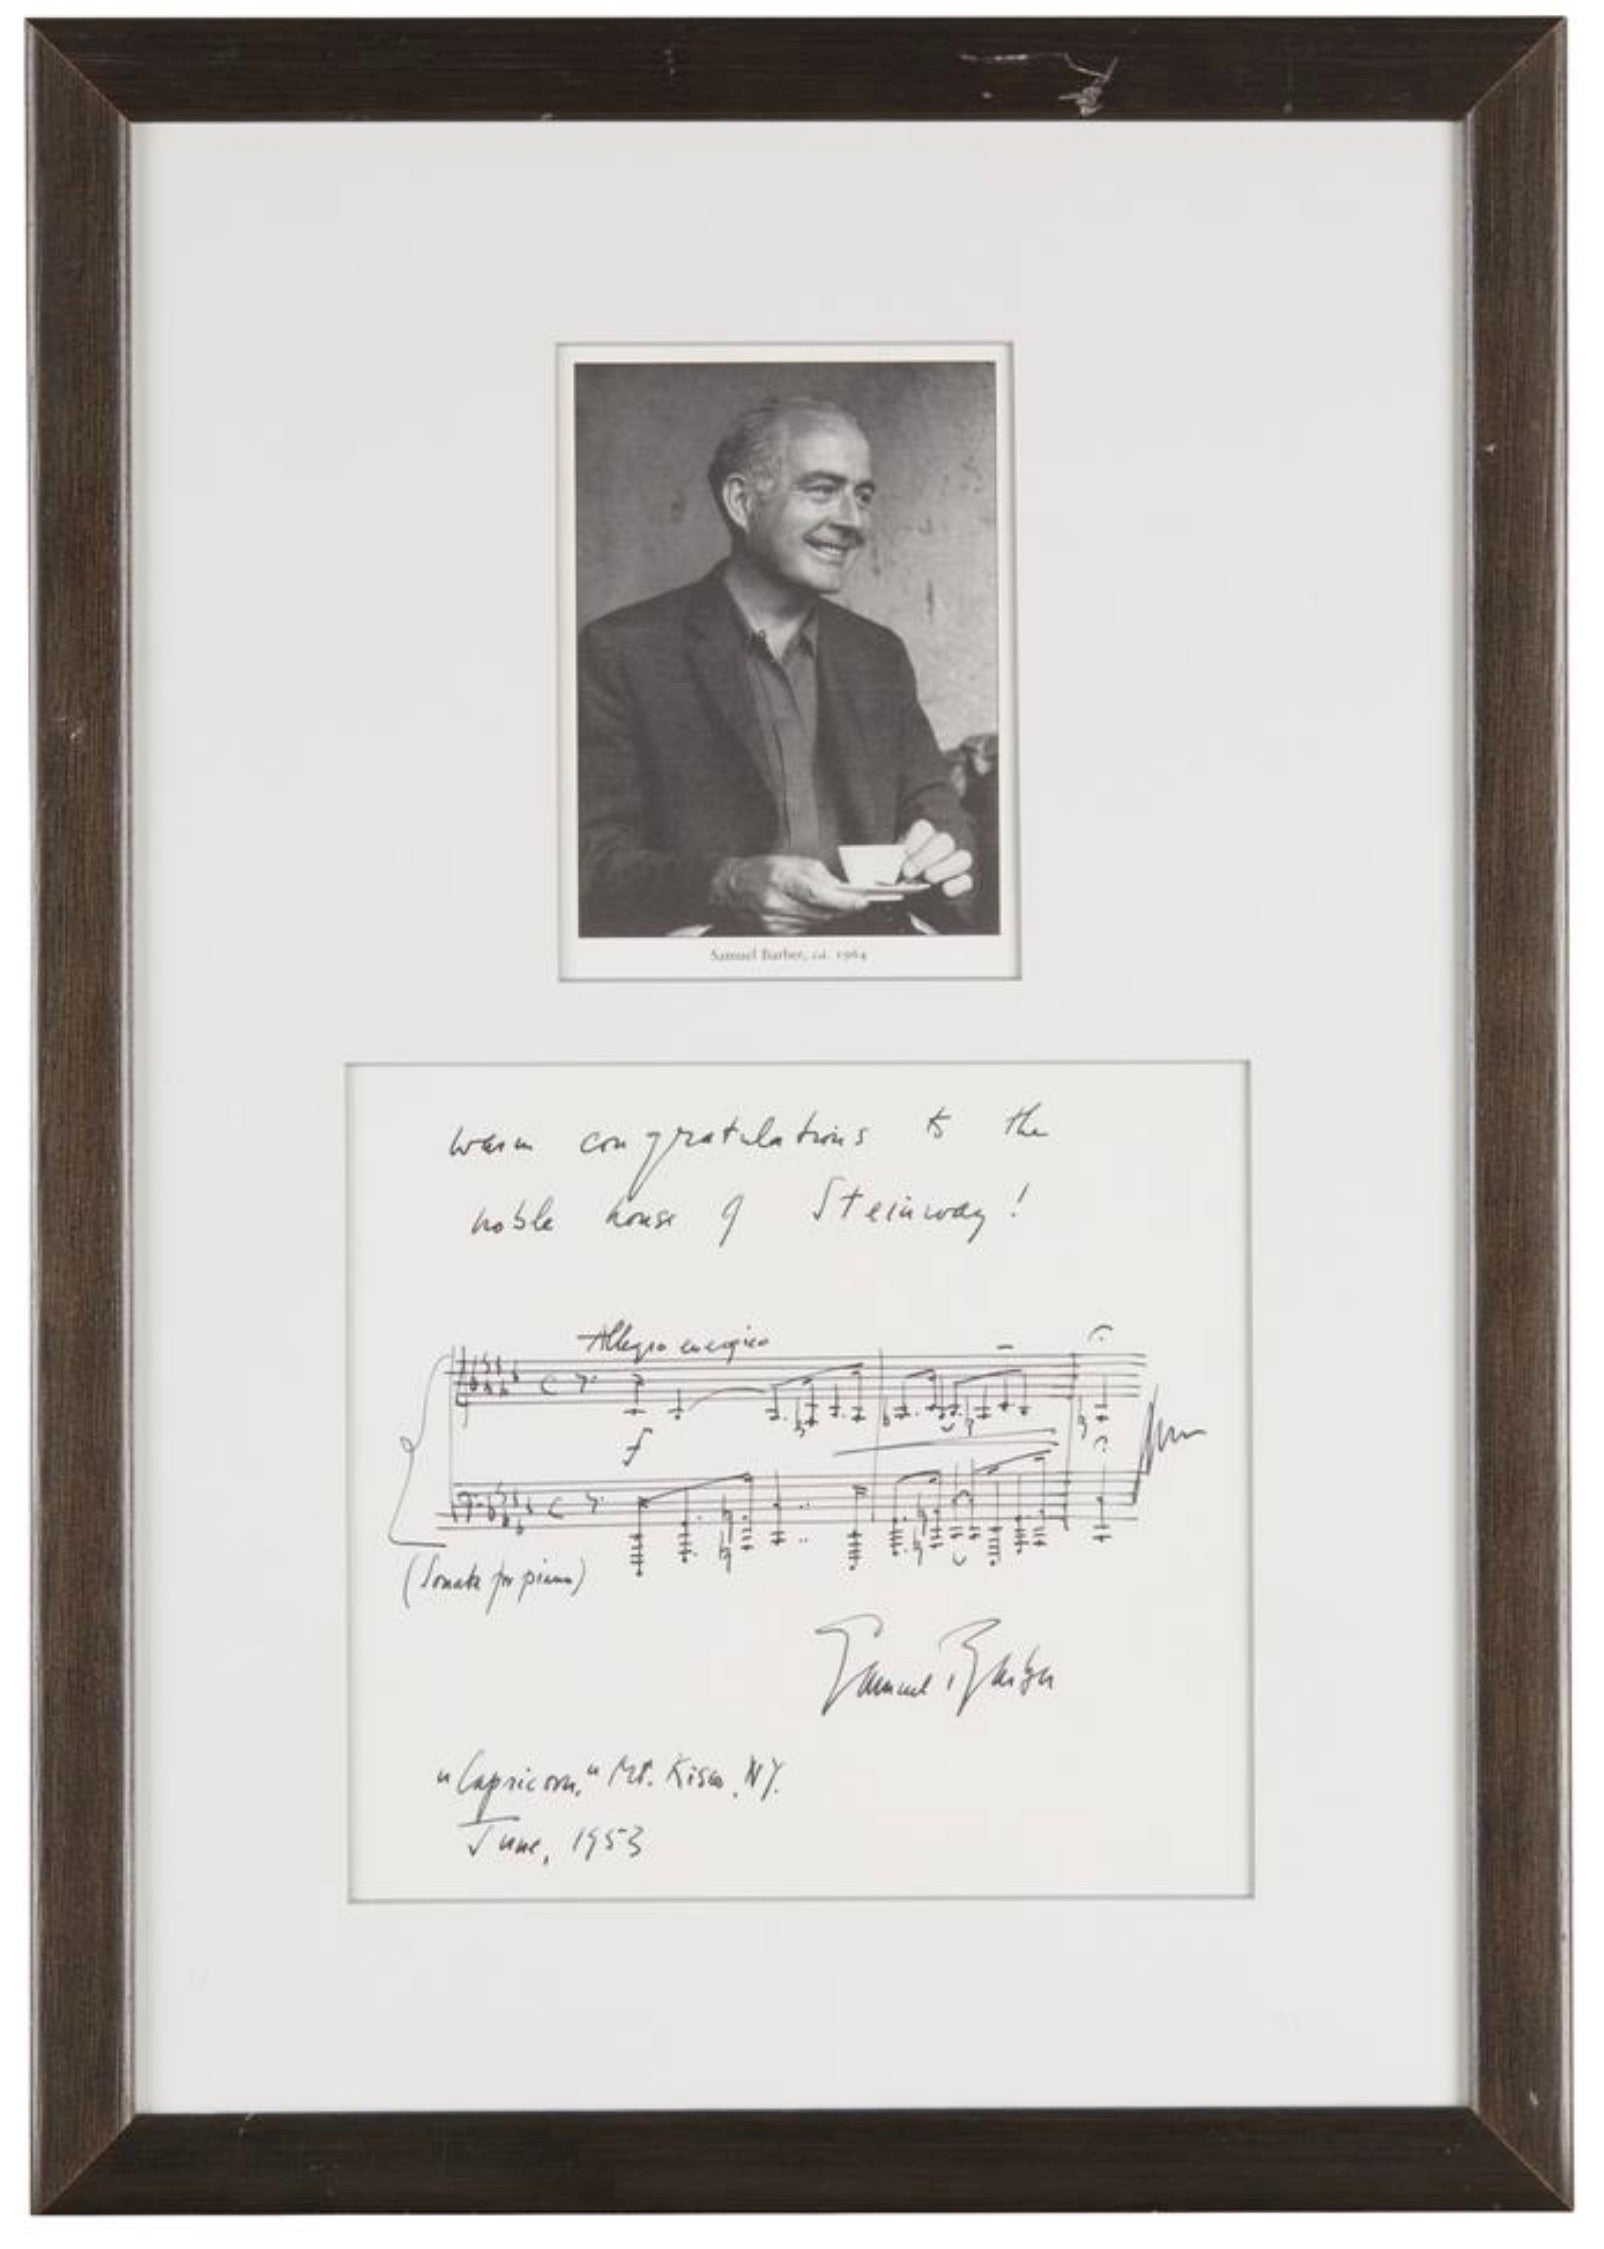 Samuel Barber, ca. 1964
warm congratulations to the
noble house of Steinway!
Allegro energico
f
(Sonata for piano)
Samuel Barber
"Capricorn," Mt. Kisco, NY.
June, 1953